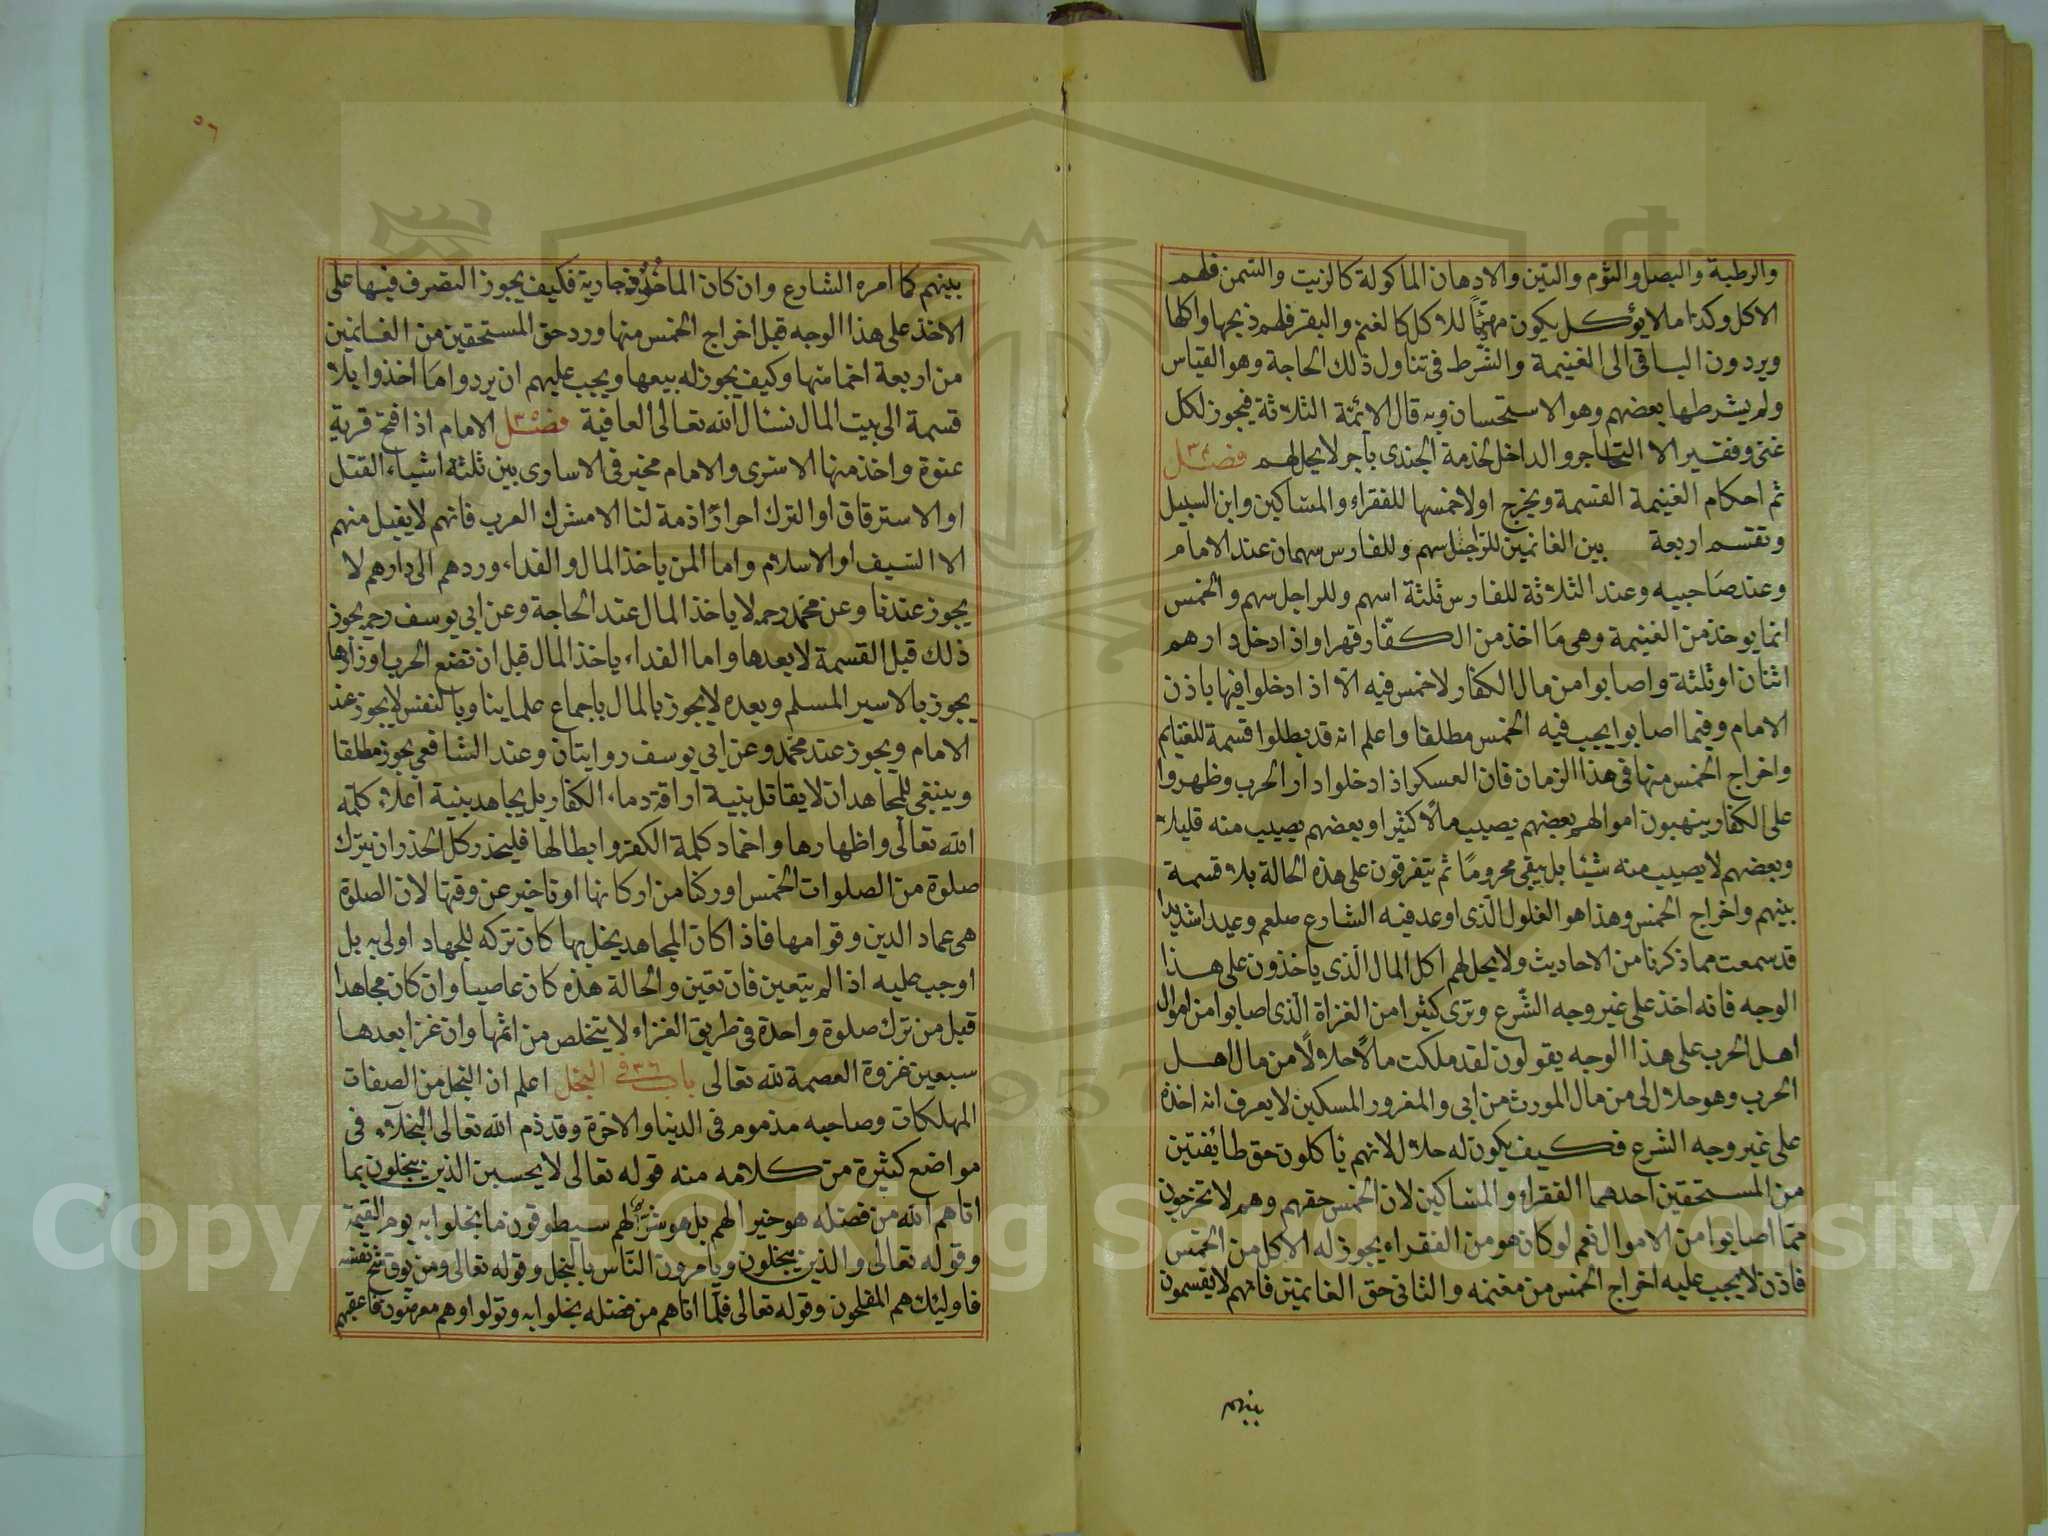 والرطبة والبصل والثوم والتين والادهان الماكولة كالزيت والسمن فلهم
الاكل وكذا ما لا يؤكل يكون مهيئاً للاكل كالغنم والبقر فلهم ذبحها واكلها
ويردون الباقى الى الغنيمة والشرط فى تناول ذلك الحاجة وهو القياس
ولم يشرطها بعضهم وهو الاستحسان وبه قال الايمة الثلاثة فيجوز لكل
غنى وفقير الا التاجر والداخل لخدمة الجندى باجر لا يحل لهم فصل ٣٤
ثم احكام الغنيمة القسمة ويخرج اولا خمسها للفقراء والمساكين وابن السبيل
وتقسم اربعة بين الغانمين للراجل سهم وللفارس سهمان عند الامام
وعند صاحبيه وعند الثلاثة للفارس ثلثة اسهم وللراجل سهم والخمس
انما يوخذ من الغنيمة وهى ما اخذ من الكفار قهرا واذا دخل دارهم
اثنان او ثلثة واصابوا من مال الكفار لا خمس فيه الا اذا دخلوا فيها باذن
الامام وفيما اصابوا يجب فيه الخمس مطلقا واعلم انه قد بطلوا قسمة للغنايم
واخراج الخمس منها فى هذا الزمان فان العسكر اذا دخلوا دار الحرب وظهروا
على الكفار ينهبون اموالهم بعضهم يصيب مالا كثيرا وبعضهم يصيب منه قليلا
وبعضهم لا يصيب منه شيئا بل يبقى محروما ثم يتفرقون على هذه الحالة بلا قسمة
بينهم واخراج الخمس وهذا هو الغلول الذى اوعد فيه الشارع صلعم وعيدا شديدا
قد سمعت مما ذكرنا من الاحاديث ولا يحل لهم اكل المال الذى ياخذون على هذا
الوجه فانه اخذ على غير وجه الشرع وترى كثيرا من الغزاة الذى اصابوا من اموال
اهل الحرب على هذا الوجه يقولون لقد ملكت مالا حلالا من مال اهل
الحرب وهو حلال لى من مال المورث من ابى والمغرور المسكين لا يعرف انه اخذه
على غير وجه الشرع فكيف يكون له حلال لانهم ياكلون حق طايفتين
من المستحقين احدهما الفقراء والمساكين لان الخمس حقهم وهم لا يخرجون
مما اصابوا من الاموال نعم لو كان هو من الفقراء يجوز له الاكل من الخمس
فاذن لا يجب عليه اخراج الخمس من مغنمه والثانى حق الغانمين فانهم لا يقسمون
بينهم
٥٦
بينهم كما امره الشارع وان كان الماخوذ جارية فكيف يجوز التصرف فيها على
الاخذ على هذا الوجه قبل اخراج الخمس منها ورد حق المستحقين من الغانمين
من اربعة اخماسها وكيف يجوز له بيعها ويجب عليهم ان يردوا ما اخذوا بلا
قسمة الى بيت المال نسئال الله تعالى العافية فصل ٣٥ الامام اذا فتح قرية
عنوة واخذ منها الاسرى والامام مخير فى الاسارى بين ثلثة اشياء القتل
او الاسترقاق او الترك احرارا ذمة لنا الا مشرك العرب فانهم لا يقبل منهم
الا السيف او الاسلام واما المن ياخذ المال والفداء وردهم الى دارهم لا
يجوز عندنا وعن محمد رحمه لا ياخذ المال عند الحاجة وعن ابى يوسف رحمه يجوز
ذلك قبل القسمة لا بعدها واما الفداء ياخذ المال قبل ان تضع الحرب اوزارها
يجوز بالاسير المسلم وبعده لا يجوز بالمال باجماع علماينا وبالنفس لا يجوز عند
الامام ويجوز عند محمد وعن ابى يوسف روايتان وعند الشافعى يجوز مطلقا
وينبغى للمجاهد ان لا يقاتل بنية اراقة دماء الكفار بل يجاهد بنية اعلاء كلمة
الله تعالى واظهارها واخماد كلمة الكفر وابطالها فليحذر كل الحذر ان يترك
صلوة من الصلوات الخمس او ركنا من اركانها او تاخير عن وقتها لان الصلوة
هى عماد الدين وقوامها فاذا كان المجاهد يخل بها كان تركه للجهاد اولى به بل
اوجب عليه اذا لم يتعين فان تعين والحالة هذه كان عاصيا وان كان مجاهدا
قيل من ترك صلوة واحدة فى طريق الغزاء لا يتخلص من اثمها وان غزا بعدها
سبعين غزوة العصمة لله تعالى باب ٣٦ فى البخل اعلم ان البخل من الصفات
المهلكات وصاحبه مذموم فى الدنيا والاخرة وقد ذم الله تعالى البخلاء فى
مواضع كثيرة من كلامه منه قوله تعالى لا يحسبن الذين يبخلون بما
اتاهم الله من فضله هو خيرا لهم بل هو شر لهم سيطوقون ما بخلوا به يوم القيمة
وقوله تعالى والذين يبخلون ويامرون الناس بالبخل وقوله تعالى ومن يوق شح نفسه
فاولئك هم المفلحون وقوله تعالى فلما اتاهم من فضله بخلوا به وتولوا وهم معرضون فاعقبهم
Copyright © King Saud University
1957